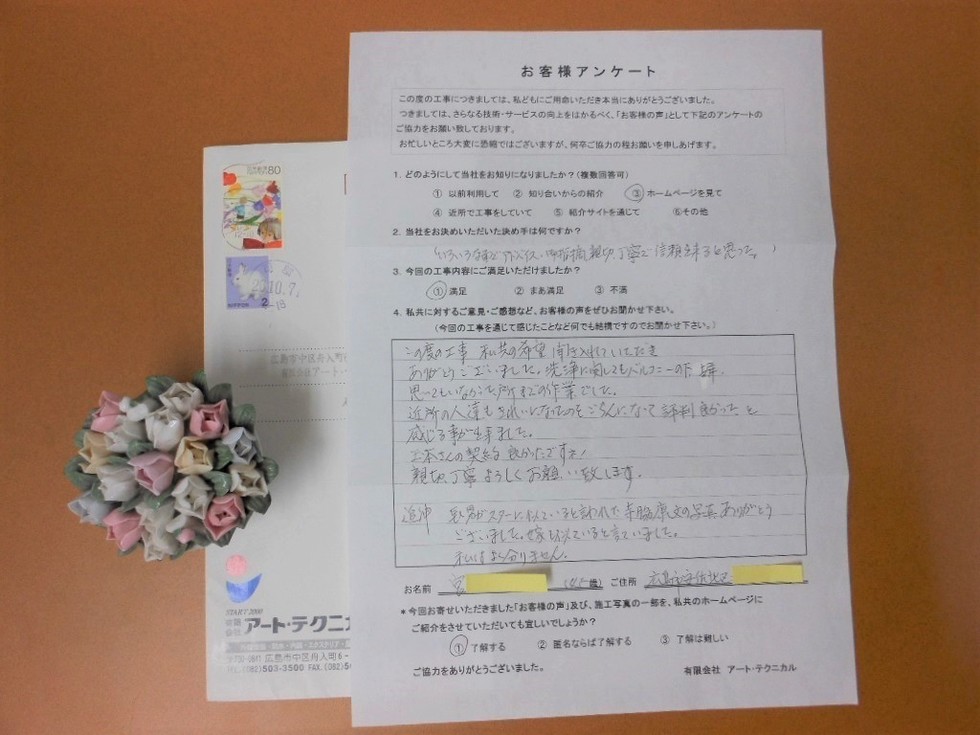 お客様アンケート
この度の工事につきましては、私どもにご用命いただき本当にありがとうございました。
つきましては、さらなる技術・サービスの向上をはかるべく、「お客様の声」として下記のアンケートの
ご協力をお願い致しております。
お忙しいところ大変に恐縮ではございますが、何卒ご協力の程お願いを申しあげます。
1. どのようにして当社をお知りになりましたか？(複数回答可)
① 以前利用して ② 知り合いからの紹介 ③ ホームページを見て
④ 近所で工事をしていて ⑤ 紹介サイトを通じて ⑥その他
2. 当社をお決めいただいた決め手は何ですか？
親切、丁寧で信頼出来ると思った。)
3. 今回の工事内容にご満足いただけましたか？
① 満足 ② まあ満足 ③ 不満
4. 私共に対するご意見・ご感想など、お客様の声をぜひお聞かせ下さい。
(今回の工事を通じて感じたことなど何でも結構ですのでお聞かせ下さい。)
この度の工事 私共の希望 聞き入れていただき
ありがとうございました。洗浄に関してもバルコニーの下、塀、
思ってもいなかった所までの作業でした。
近所の人達もきれいになったのをご覧になって評判良かったと
感じる事が出来ました。
さんの契約良かったですネ!
親切、丁寧よろしくお願い致します。
追伸 スターに似ていると言われた寺脇康文の写真ありがとう
ございました。嫁も似ていると言ていました。
私はよく分りません。
お名前 宮 歳) ご住所 広島市安佐北区
*今回お寄せいただきました「お客様の声」及び、施工写真の一部を、私共のホームページに
ご紹介をさせていただいても宜しいでしょうか？
① 了解する ② 匿名ならば了解する ③ 了解は難しい
ご協力をありがとうございました。 有限会社 アート・テクニカル
80
10.7
広島市中区舟入町
有限会社アート・
START 2000
有限会社 アート・テクニカ
〒730-0841 広島市中区舟入町6－
TEL.(082)503-3500 FAX.(082)50